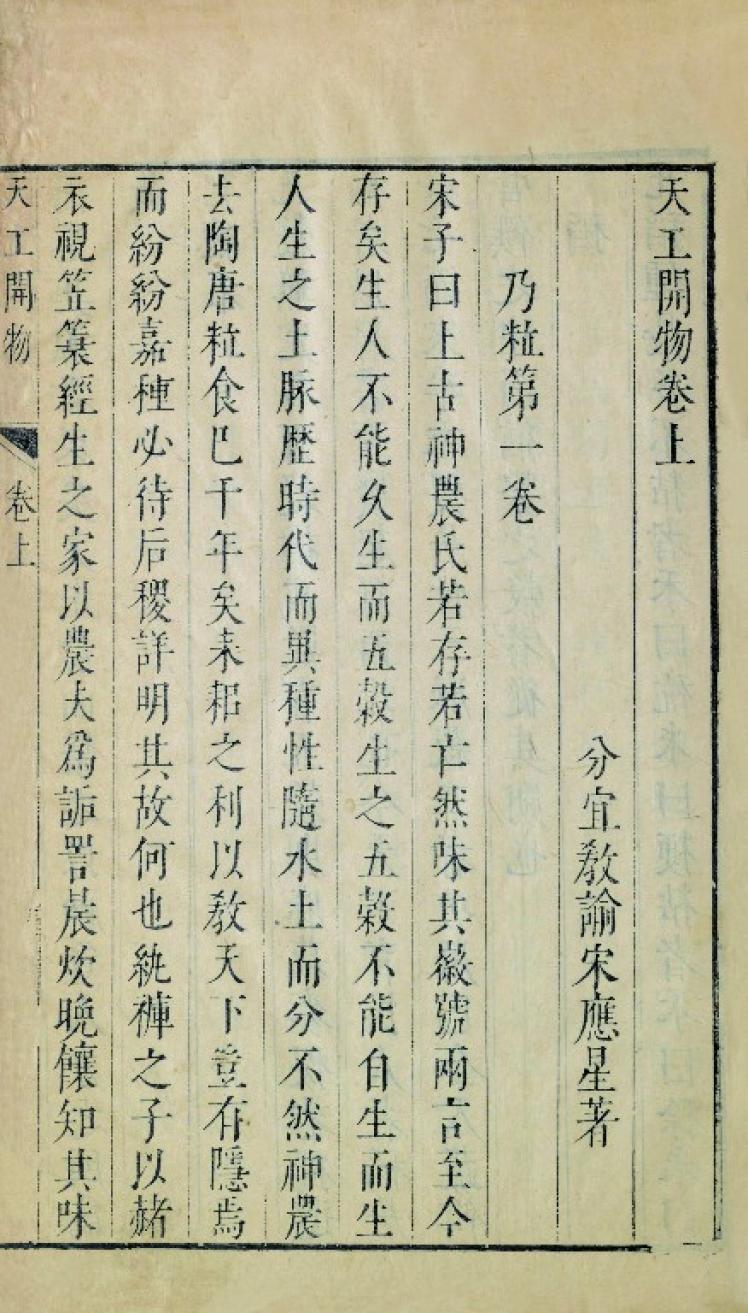 天工開物卷上
分宜教諭宋應星著
乃粒第一卷
宋子曰上古神農氏若存若亡然味其徽號兩言至今
存矣生人不能久生而五穀生之五穀不能自生而生
人生之土脉歷時代而異種性隨水土而分不然神農
去陶唐粒食已千年矣耒耜之利以教天下豈有隱焉
而紛紛嘉種必待后稷詳明其故何也紈褲之子以赭
衣視笠蓑經生之家以農夫爲詬詈晨炊晚饟知其味
天工開物 卷上